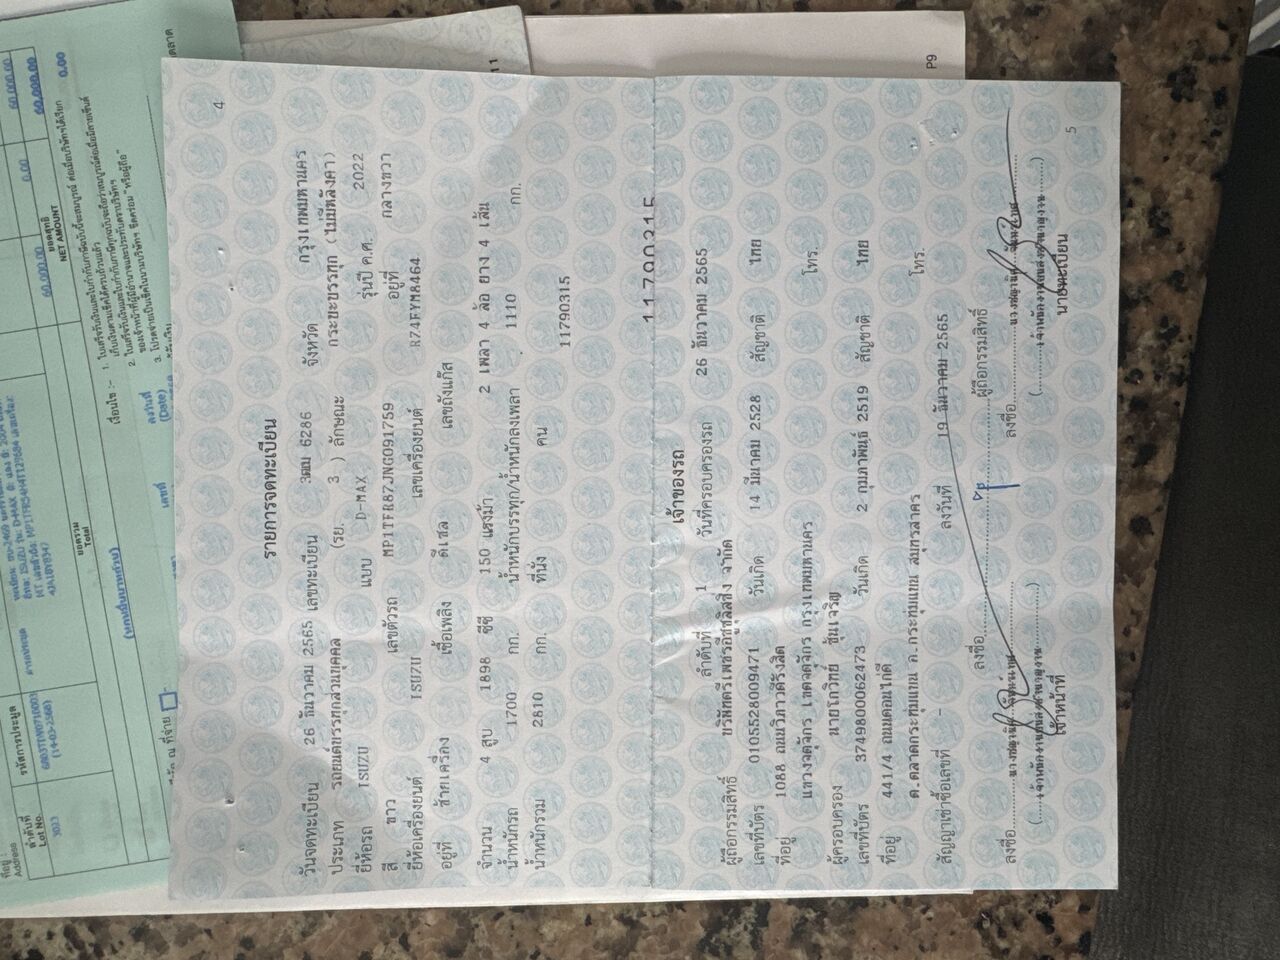 4
รายการจดทะเบียน
วันจดทะเบียน 26 ธันวาคม 2565 เลขทะเบียน 3ฒฒ 6286 จังหวัด กรุงเทพมหานคร
ประเภท รถยนต์บรรทุกส่วนบุคคล (รย. 3 ) ลักษณะ กระบะบรรทุก (ไม่มีหลังคา)
ยี่ห้อรถ ISUZU แบบ D-MAX รุ่นปี ค.ศ. 2022
สี ขาว เลขตัวรถ MP1TFR87JNG091759 อยู่ที่ กลางขวา
ยี่ห้อเครื่องยนต์ ISUZU เลขเครื่องยนต์ RZ4EYM8464
อยู่ที่ ซ้ายเครื่อง เชื้อเพลิง ดีเซล เลขถังแก๊ส
จำนวน 4 สูบ 1898 ซีซี 150 แรงม้า 2 เพลา 4 ล้อ ยาง 4 เส้น
น้ำหนักรถ 1700 กก. น้ำหนักบรรทุก/น้ำหนักลงเพลา 1110 กก.
น้ำหนักรวม 2810 กก. ที่นั่ง คน
11790315
เจ้าของรถ
ลำดับที่ 1 วันที่ครอบครองรถ 26 ธันวาคม 2565
ผู้ถือกรรมสิทธิ์ บริษัทตรีเพชรอีซูซุลิสซิ่ง จำกัด
เลขที่บัตร 0105528009471 วันเกิด 14 มีนาคม 2528 สัญชาติ ไทย
ที่อยู่ 1088 ถนนวิภาวดีรังสิต
แขวงจตุจักร เขตจตุจักร กรุงเทพมหานคร โทร.
ผู้ครอบครอง นายโกวิทย์ ชุ้นเจริญ
เลขที่บัตร 3749800062473 วันเกิด 2 กุมภาพันธ์ 2519 สัญชาติ ไทย
ที่อยู่ 441/4 ถนนดอนไก่ดี
ต.ตลาดกระทุ่มแบน อ.กระทุ่มแบน สมุทรสาคร โทร.
สัญญาเช่าซื้อเลขที่ - ลงวันที่ 19 ธันวาคม 2565
ลงชื่อ ผู้ถือกรรมสิทธิ์
ลงชื่อ ลงชื่อ
เจ้าหน้าที่ นายทะเบียน
5
P9
11
ที่อยู่ :
Address
ลำดับที่
Lot No.
3023
รหัสการประมูล
(14-03-2568)
ยี่ห้อ: ISUZU รุ่น: D-MAX
ยอดรวม
Total
60,000.00
0.00
60,000.00
ยอดสุทธิ
NET AMOUNT
60,000.00
0.00
เงื่อนไข :-
เลขที่
ลงวันที่
(Date)